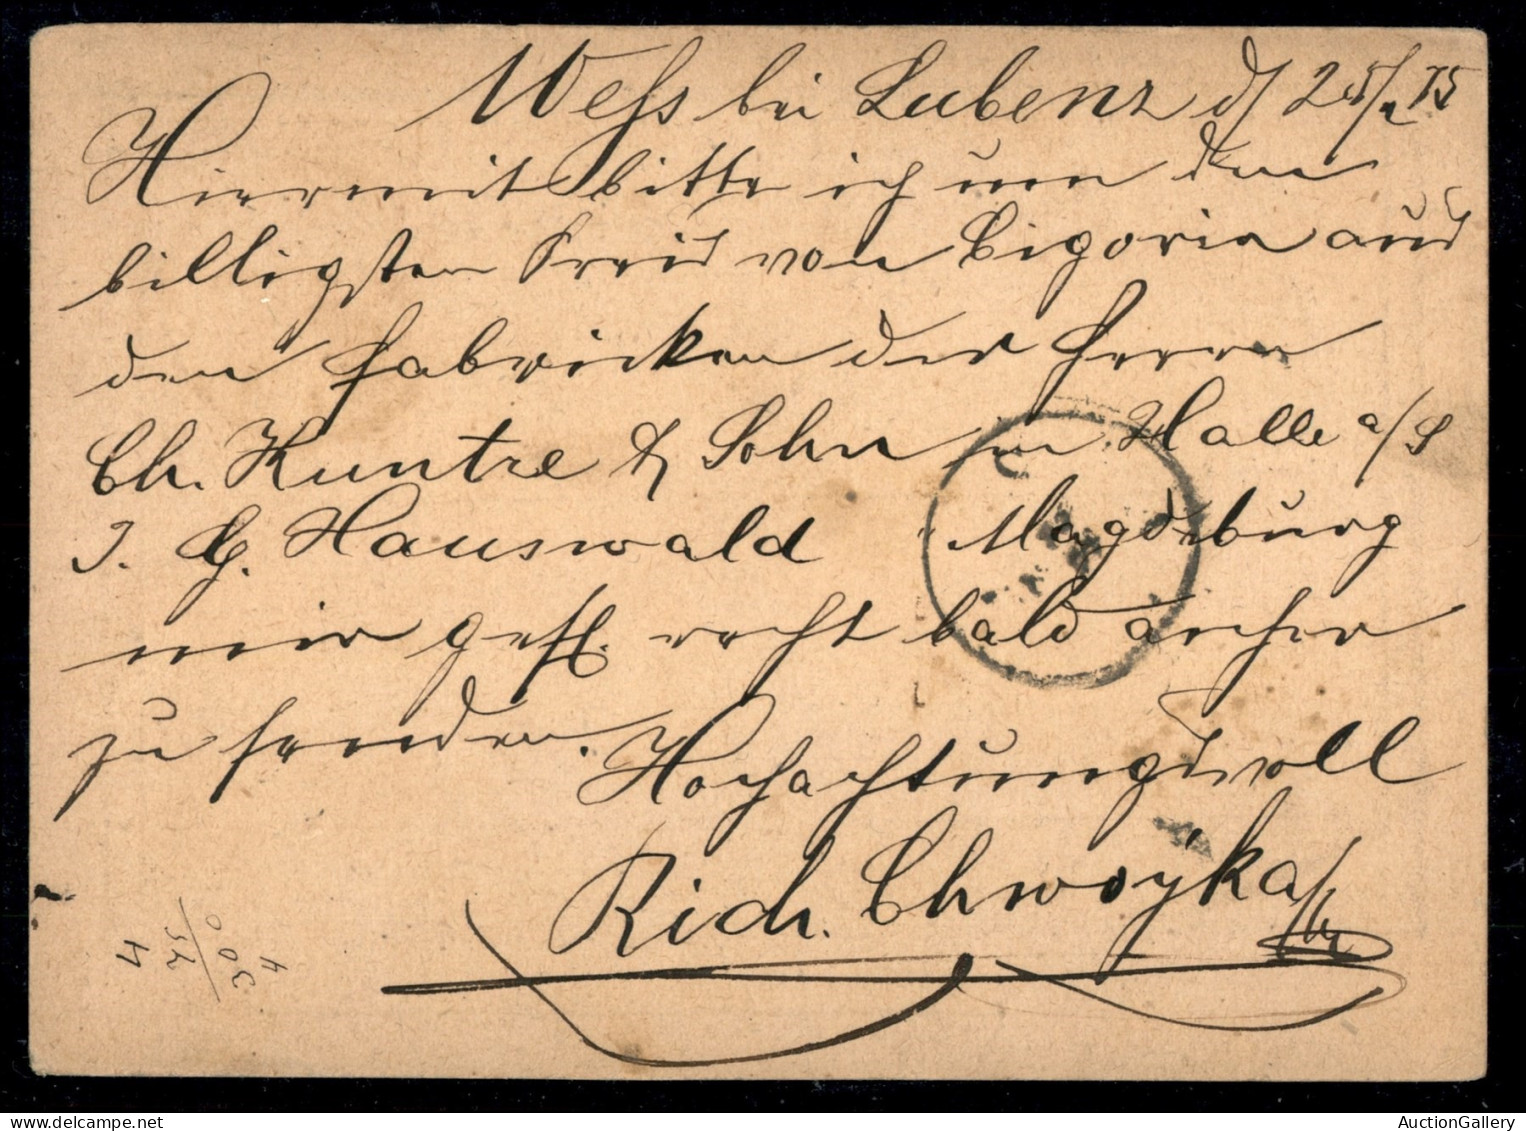 Wehs bei Lubenz d/ 25/2 75
Hiermit bitte ich um den
billigsten Preis von Cigorien aus
den Fabricken der Herrn
Ch. Kuntze & Sohn in Halle a/S
J. G. Hauswald Magdeburg
mir gefl. recht bald anher
zu senden.
Hochachtungsvoll
Rich. Chwoyka
delcampe.net
AuctionGallery